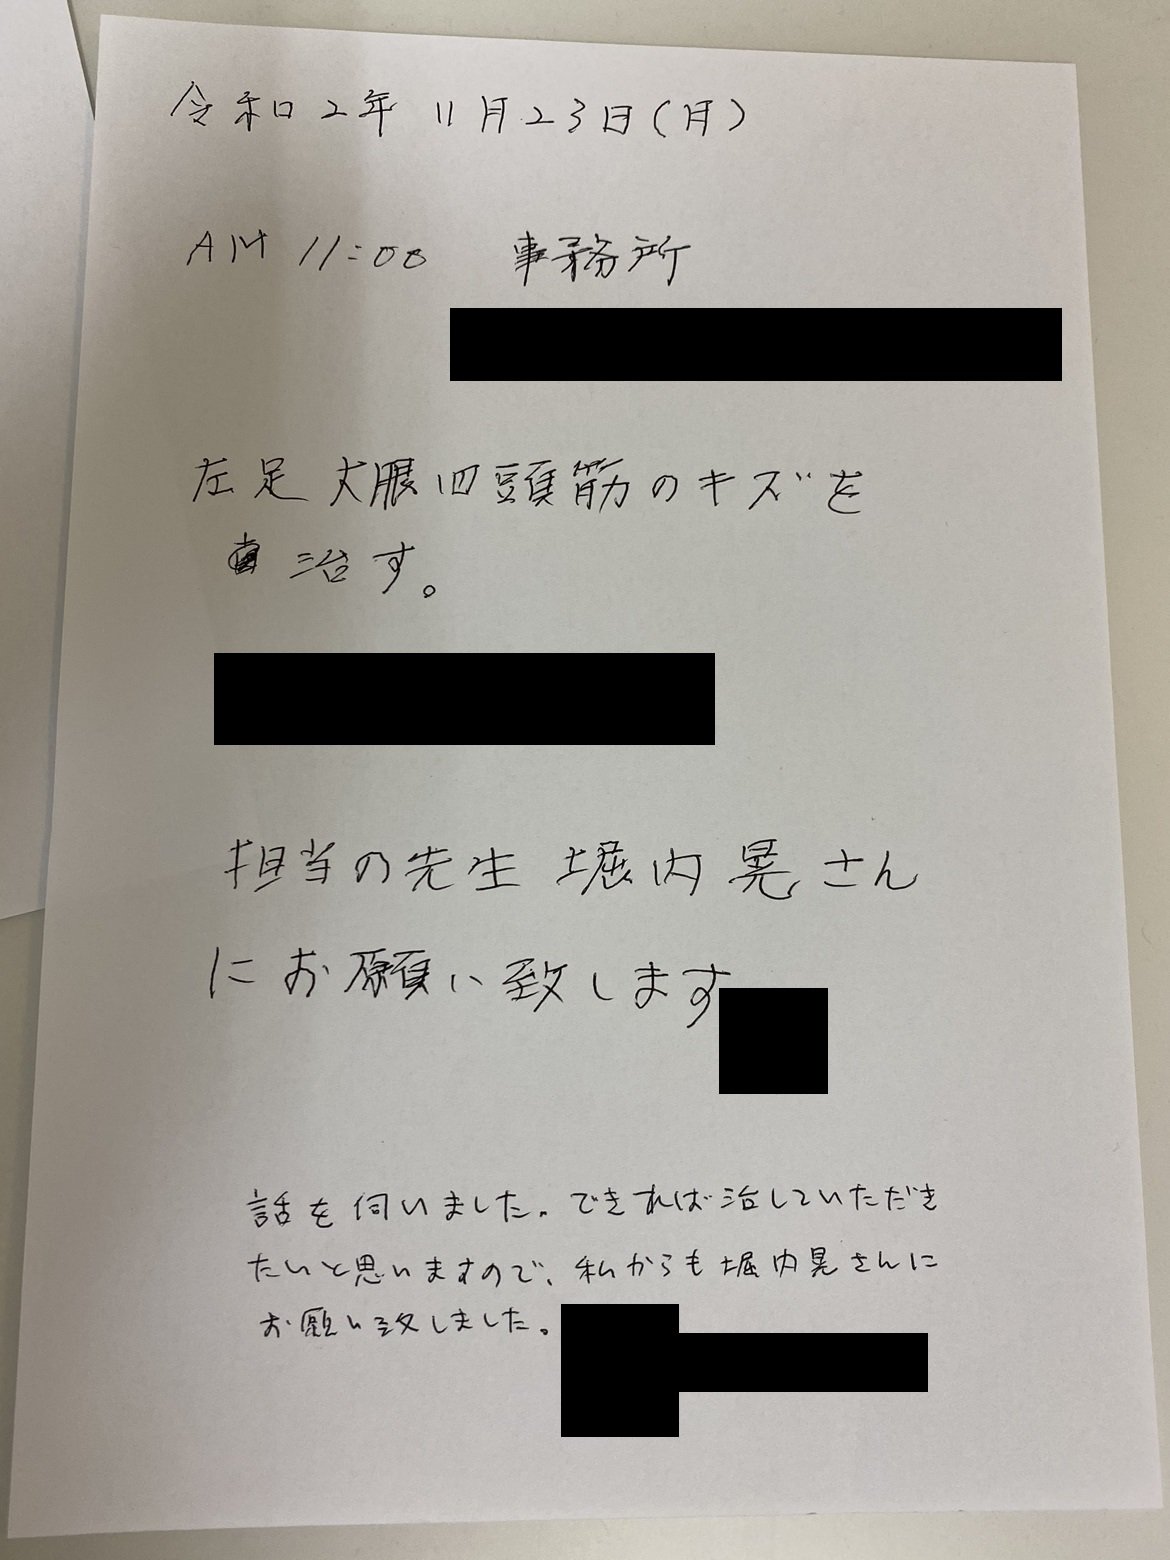 令和2年 11月23日(月)
AM 11:00 事務所
左足 大腿四頭筋のキズを
治す。
担当の先生 堀内晃さん
にお願い致します
話を伺いました。できれば治していただき
たいと思いますので、私からも堀内晃さんに
お願い致しました。